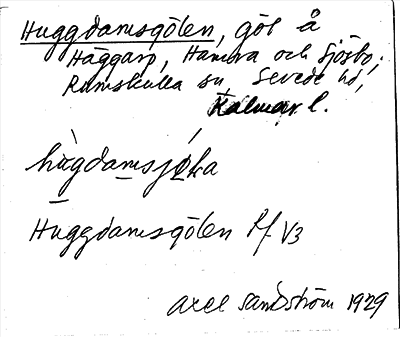 Huggdamsgölen, göl å
Häggarp, Hamra och Sjösbo,
Rumskulla sn, Sevede hd,
Kalmar l.
hùgdamsjø̀ka
Huggdamsgölen Pf V3
Axel Sandström 1929